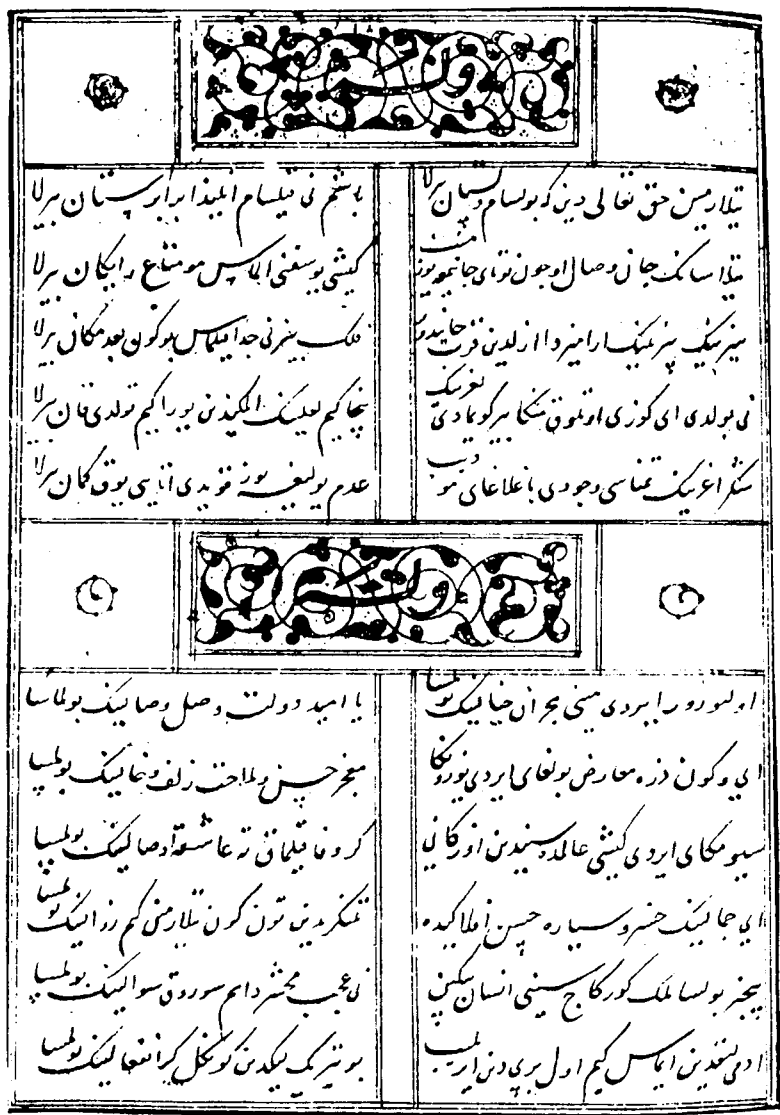 وله
تیلارمین حق تعالی دین که بولسام دلستان بیرلا باشیم نی قیلسام ایلیدا برابر آستان بیرلا
تیلاسانک جان وصال اوجون توتای جانیمه یوز منت کیشی یوسفنی الماس مو متاع رایکان بیرلا
ارامیزدا ازلدین قرب جانیدور فلک بیزنی جدا قیلماس بو کون بعد مکان بیرلا
نی بولدی ای کوزی اوتلوق منکا بیر کویمادی لعلینک کیم لعلینک الیکیندین یوراکیم تولدی قان بیرلا
اغزینک تمناسی وجودی باغلاغای مو دیب عدم یولیغه یوز قویدی اتایی یوق کمان بیرلا
وله
اولتورور ایردی مینی هجران خیالینک بولمسا یا امید دولت وصل وصالینک بولماسا
ای و کون ذره معارض بولغای ایردی یوزونکا مخبر حسن و ملاحت زلف و خالینک بولمسا
سیومکای ایردی کیشی عالمده سیندین اوزکانی کر وفا قیلماق بولمسا
ای جمالینک خسرو سیاره حسن املاکیده تنکریدین تون کون تیلارمنی کم زوالینک بولمسا
بیخبر بولسا ملک کورکاج سینی انسان نی عجب محشردا هم سوروق سوالینک بولمسا
ادمی لیغدین ایماس کیم اول پری دین ایریلیب بو تیریکلیکدین کونکل کر انفعالینک بولمسا